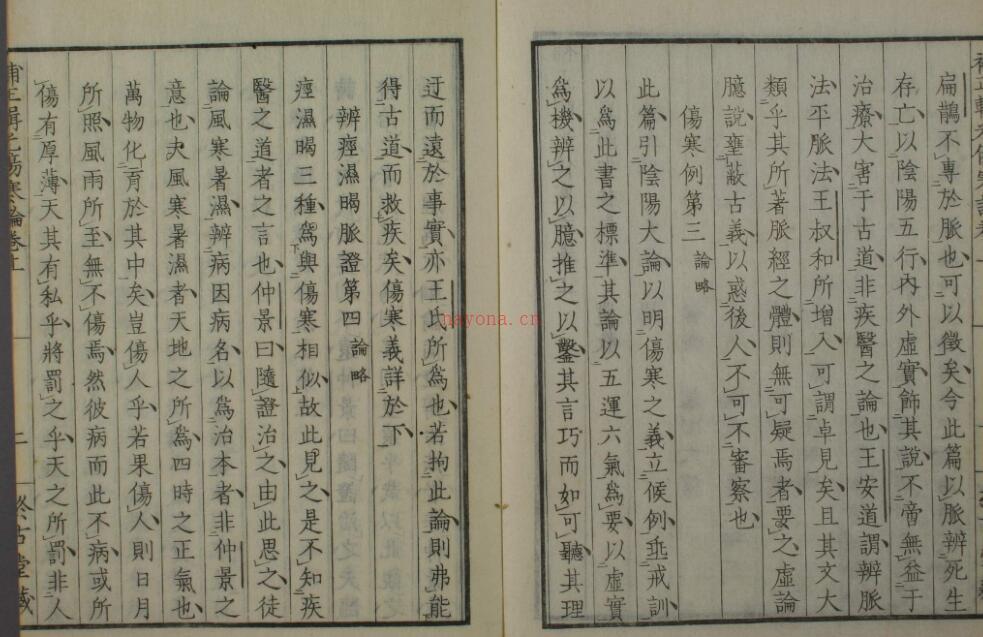 扁鵲不專於脈也可以徵矣今此篇以脈辨死生
存亡以陰陽五行內外虛實飾其說不啻無益于
治療大害于古道非疾醫之論也王安道謂辨脈
法平脈法王叔和所增入可謂卓見矣且其文大
類乎其所著脈經之體則無可疑焉者要之虛論
臆說壅蔽古義以惑後人不可不審察也
傷寒例第三 論略
此篇引陰陽大論以明傷寒之義立候例垂戒訓
以爲此書之標準其論以五運六氣爲要以虛實
爲機辨之以臆推之以鑿其言巧而如可聽其理
迂而遠於事實亦王氏所爲也若拘此論則弗能
得古道而救疾矣傷寒義詳於下
辨痙濕暍脈證第四 論略
痙濕暍三種爲與傷寒相似故此見之是不知疾
醫之道者之言也仲景曰隨證治之由此思之徒
論風寒暑濕辨病因病名以爲治本者非仲景之
意也夫風寒暑濕者天地之所爲四時之正氣也
萬物化育於其中矣豈傷人乎若果傷人則日月
所照風雨所至無不傷焉然彼病而此不病或所
傷有厚薄天其有私乎將罰之乎天之所罰非人
傷寒論卷
二
古堂藏
nayona.cn